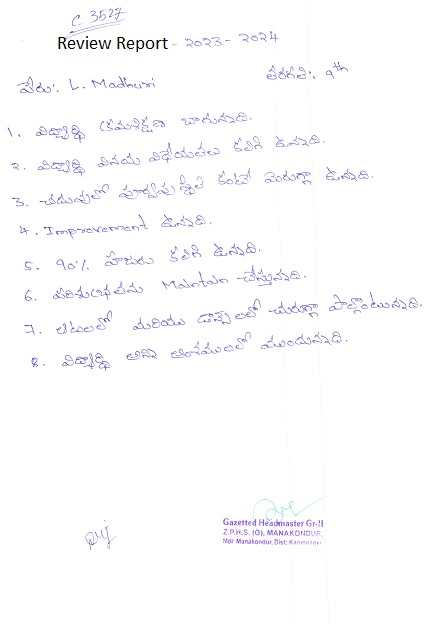 C 3527
Review Report - 2023 - 2024
పేరు: L. Madhuri తరగతి: 9th
1. విద్యార్థి క్రమశిక్షణ బాగున్నది.
2. విద్యార్థి వినయ విధేయతలు కలిగి ఉన్నది.
3. చదువులో పూర్వపు స్థితి కంటే మెరుగ్గా ఉన్నది.
4. Improvement ఉన్నది.
5. 90% హాజరు కలిగి ఉన్నది.
6. పరిశుభ్రతను Maintain చేస్తున్నది.
7. ఆటలలో మరియు డాన్స్ లలో చురుగ్గా పాల్గొంటున్నది.
8. విద్యార్థి అన్ని అంశములలో ముందున్నది.
Gazetted Headmaster Gr-II
Z.P.H.S. (G), MANAKONDUR,
Mdl: Manakondur, Dist: Karimnagar